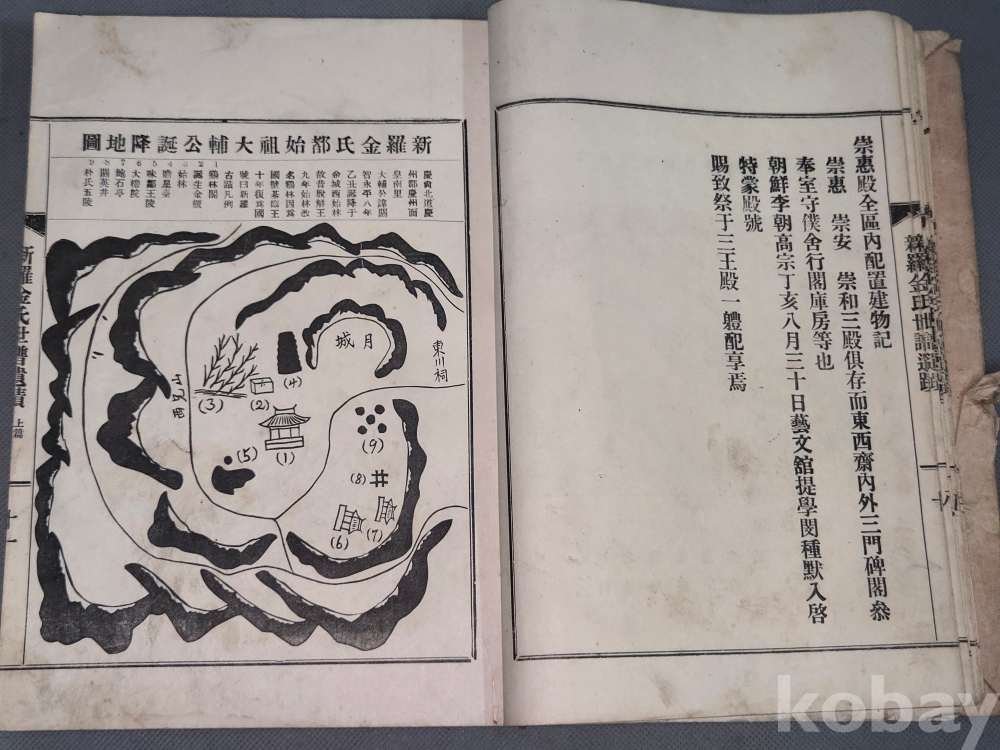 崇惠殿全區內配置建物記
崇惠 崇安 崇和三殿俱存而東西齋內外三門碑閣叅
奉室守僕舍行閣庫房等也
朝鮮李朝高宗丁亥八月三十日藝文舘提學閔種默入啓
特蒙殿號
賜致祭于三王殿一軆配享焉
新羅金氏世譜遺蹟
新羅金氏都始祖大輔公誕降地圖
慶尙北道慶
州郡慶州面
皇南里
大輔公諱閼
智永平八年
乙丑誕降于
金城西始林
故昔脫解王
九年始林改
名鷄林因爲
國號基臨王
十年復爲國
號曰新羅
古蹟凡例
1 鷄林閣
2 誕生金櫃
3 始林
4 瞻星臺
5 味鄒王陵
6
7 鮑石亭
8 閼英井
9 朴氏五陵
月城
東川祠
(4)
(3)
(2)
(1)
(5)
(9)
(8)
(7)
(6)
新羅金氏世譜遺蹟 上篇
十一
kobay